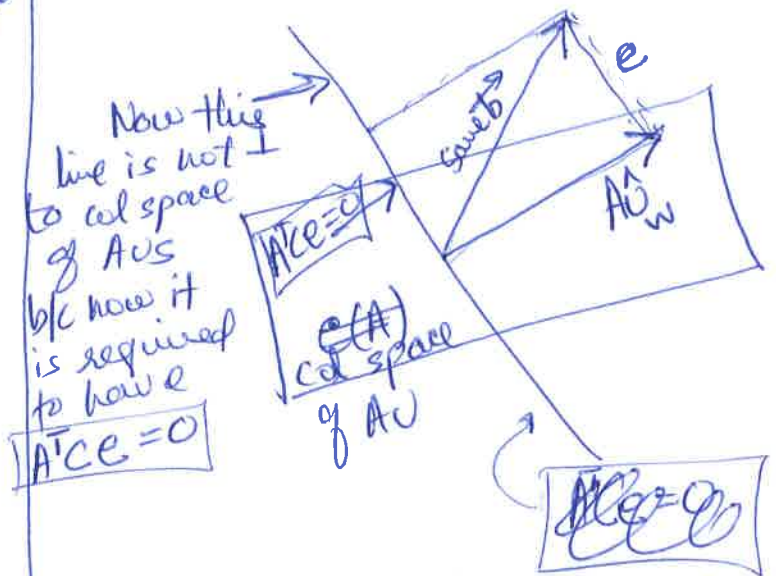 Now this
line is not ⊥
to col space
of AUs
b/c now it
is required
to have
AᵀCe = 0
same b
e
AÛ_W
AᵀCe=0
col space
of AU